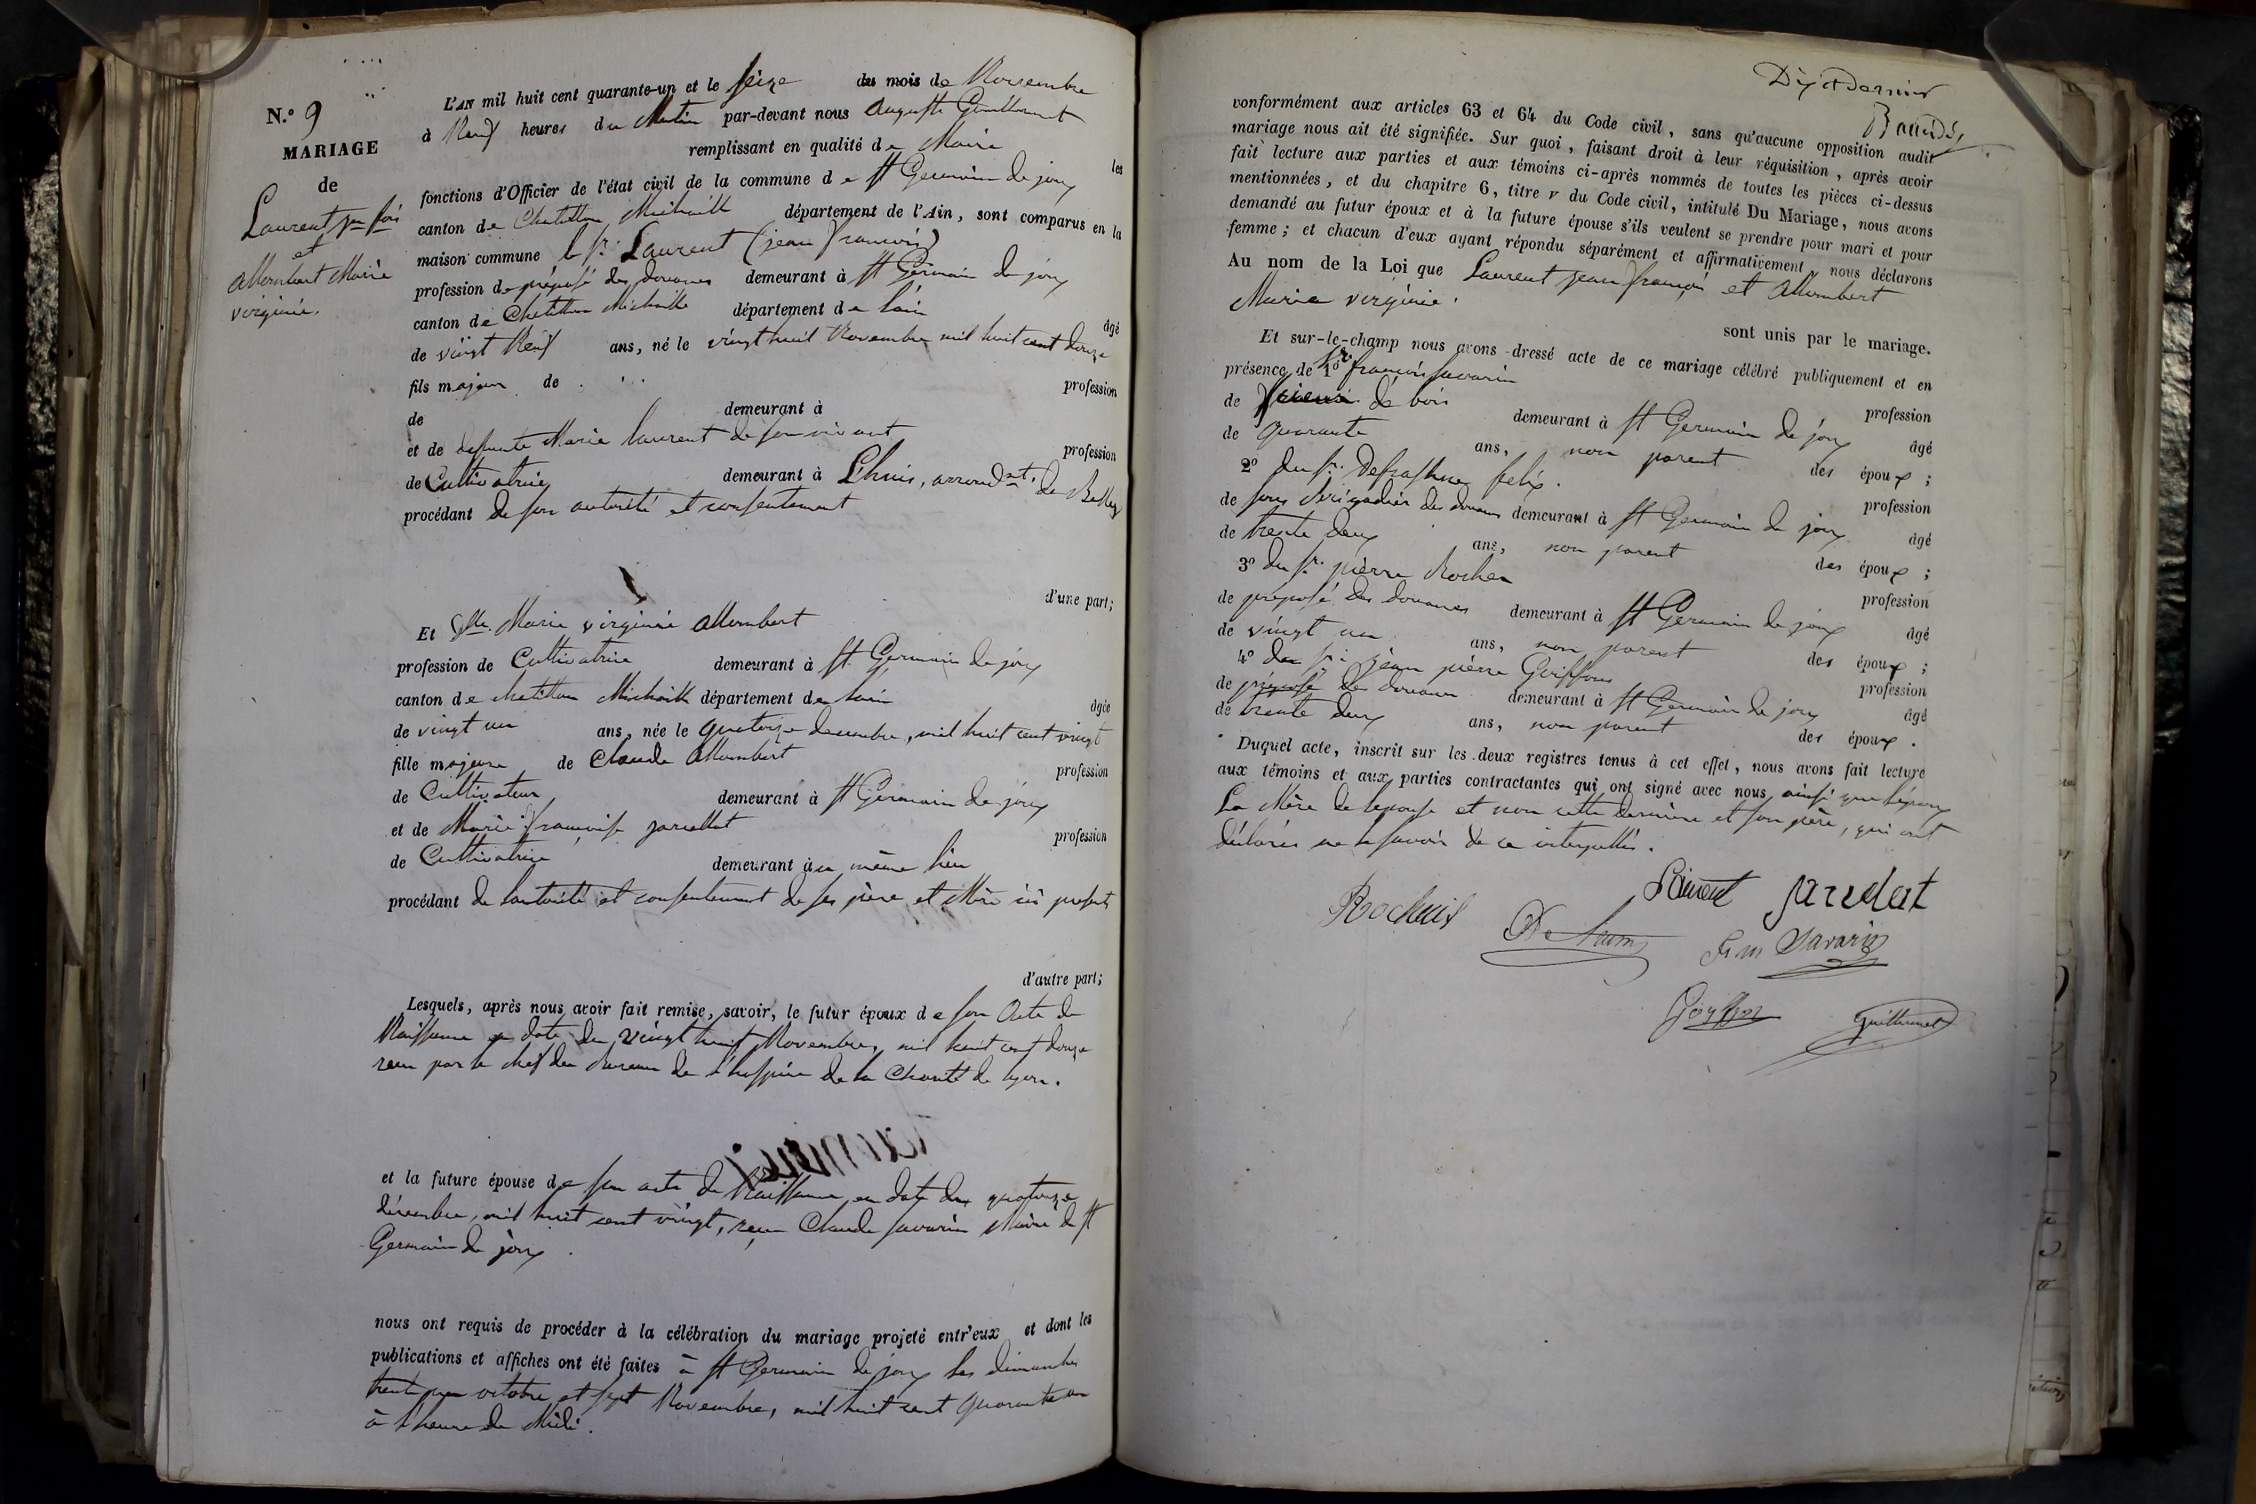 N.º 9
MARIAGE
de
Laurent Jn fois
et
Allombert Marie
virginie.
L'AN mil huit cent quarante-un et le seize du mois de Novembre
à Neuf heures du Matin par-devant nous auguste Guillermet
remplissant en qualité de Maire les
fonctions d'Officier de l'état civil de la commune de St Germain de joux
canton de Chatillon Michaille département de l'Ain, sont comparus en la
maison commune le sr. Laurent (jean françois)
profession de préposé des douanes demeurant à St Germain de joux
canton de Chatillon Michaille département de l'ain
âgé
de vingt Neuf ans, né le vingt huit Novembre mil huit cent douze
fils majeur de
profession
de demeurant à
et de defunte Marie laurent de son vivant
profession
de Cultivatrice demeurant à L'huis, arrondnt. de Belley
procédant de son autorité et consentement
d'une part;
Et Dlle. Marie virginie allombert
profession de Cultivatrice demeurant à St Germain de joux
canton de chatillon Michaille département de l'ain
âgée
de vingt un ans, née le quatorze decembre, mil huit cent vingt
fille majeure de Claude allombert
profession
de Cultivateur demeurant à St Germain de joux
et de Marie françoise
profession
de Cultivatrice demeurant au même lieu
procédant de l'autorité et consentement de ses père et Mère ici présents
d'autre part;
Lesquels, après nous avoir fait remise, savoir, le futur époux de son Acte de
Naissance en date du vingt huit Novembre, mil huit cent douze
reçu par le chef du bureau de l'hospice de la Charité de lyon.
et la future épouse de son acte de Naissance en date du quatorze
décembre, mil huit cent vingt, reçu Claude savarin Maire de St
Germain de joux.
nous ont requis de procéder à la célébration du mariage projeté entr'eux et dont les
publications et affiches ont été faites à St Germain de joux les dimanches
trente un octobre et sept Novembre, mil huit cent quarante un
à l'heure de Midi.
conformément aux articles 63 et 64 du Code civil, sans qu'aucune opposition audit
mariage nous ait été signifiée. Sur quoi, faisant droit à leur réquisition, après avoir
fait lecture aux parties et aux témoins ci-après nommés de toutes les pièces ci-dessus
mentionnées, et du chapitre 6, titre v du Code civil, intitulé Du Mariage, nous avons
demandé au futur époux et à la future épouse s'ils veulent se prendre pour mari et pour
femme; et chacun d'eux ayant répondu séparément et affirmativement, nous déclarons
Au nom de la Loi que Laurent jean françois et Allombert
Marie virginie.
sont unis par le mariage.
Et sur-le-champ nous avons dressé acte de ce mariage célébré publiquement et en
présence de 1º sr. françois savarin
profession
de scieur de bois demeurant à St Germain de joux
âgé
de quarante ans, non parent des époux;
2º du sr. felix.
profession
de sous brigadier des douanes demeurant à St Germain de joux
âgé
de trente deux ans, non parent des époux;
3º du sr. pierre
profession
de préposé des douanes demeurant à St Germain de joux
âgé
de vingt un ans, non parent des époux;
4º du sr. jean pierre Goiffon
profession
de préposé des douanes demeurant à St Germain de joux
âgé
de trente deux ans, non parent des époux.
Duquel acte, inscrit sur les deux registres tenus à cet effet, nous avons fait lecture
aux témoins et aux parties contractantes qui ont signé avec nous ainsi que l'époux
La Mère de l'epouse et non cette dernière et son père, qui ont
déclarés ne le savoir de ce interpellés.
Laurent
Savarin
Goiffon Guillermet